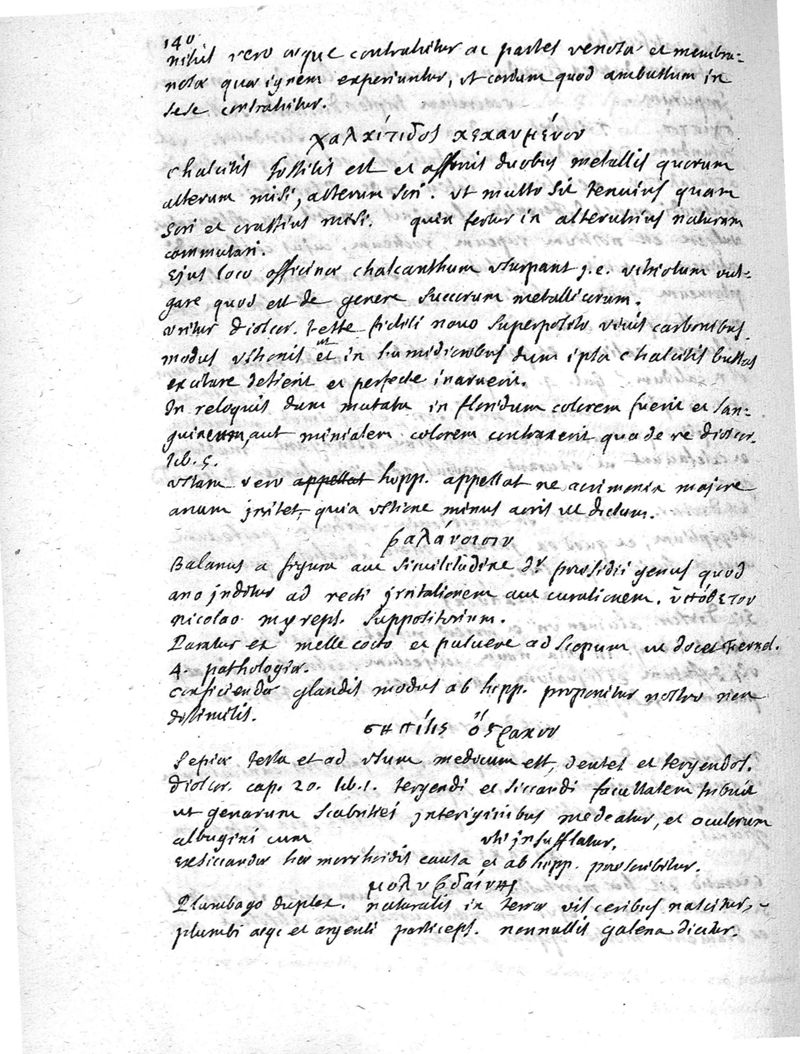 140
nihil vero æque contrahitur ac partes venosæ et membra-
nosæ quæ ignem experiuntur, ut corium quod ambustum in
sese contrahitur.
χαλκίτιδος κεκαυμένου
chalcitis fossilis est et affinis duobus metallis quorum
alterum misi, alterum sori. ut multo sit tenuius quam
sori et crassius misi. quin fertur in alterutrius naturam
commutari.
Ejus loco officinæ chalcanthum usurpant j.e. vitriolum vul-
gare quod est de genere succorum metallicorum.
uritur dioscor. teste fictili novo superposito vivis carbonibus.
modus ustionis est in humidioribus dum ipsa chalcitis bullas
excitare desierit et perfecte inaruerit.
In reliquis dum mutata in floridum colorem fuerit et san-
guineum, aut minialem colorem contraxerit qua de re dioscor.
lib. 5.
ustam vero appellat hipp. appellat ne acrimonia majore
anum jrritet, quia ustione minus acris ut dictum.
βαλάνοισιν
Balanus a figura aut similitudine dr præsidii genus quod
ano jnditur ad recti jrritationem aut curationem. ὑπόθετον
nicolao myreps. suppositorium.
Paratur ex melle cocto et pulvere ad scopum ut docet Fernel.
4. pathologiæ.
conficiendæ glandis modus ab hipp. proponitur nostro non
dissimilis.
σηπίης ὄςρακον
Sepiæ testa et ad usum medicum est, dentes et tergendos.
dioscor. cap. 20. lib. 1. tergendi et siccandi facultatem tribuit
ut genarum scabritiei jntertiginibus medeatur, et oculorum
albugini cum uti jnsufflatur.
Exsiccandæ hæmorrhoidis causa et ab hipp. præscribitur.
μολυβδαίνης
Plumbago duplex. naturalis in terræ visceribus nascitur,
plumbi æque et argenti particeps. nonnullis galena dicitur.